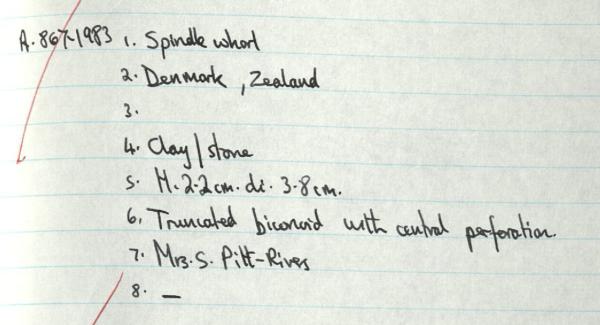 A.867-1983 1. Spindle whorl
2. Denmark, Zealand
3.
4. Clay/stone
5. H. 2.2cm. di. 3.8cm.
6. Truncated biconoid with central perforation.
7. Mrs. S. Pitt-Rivers
8. —